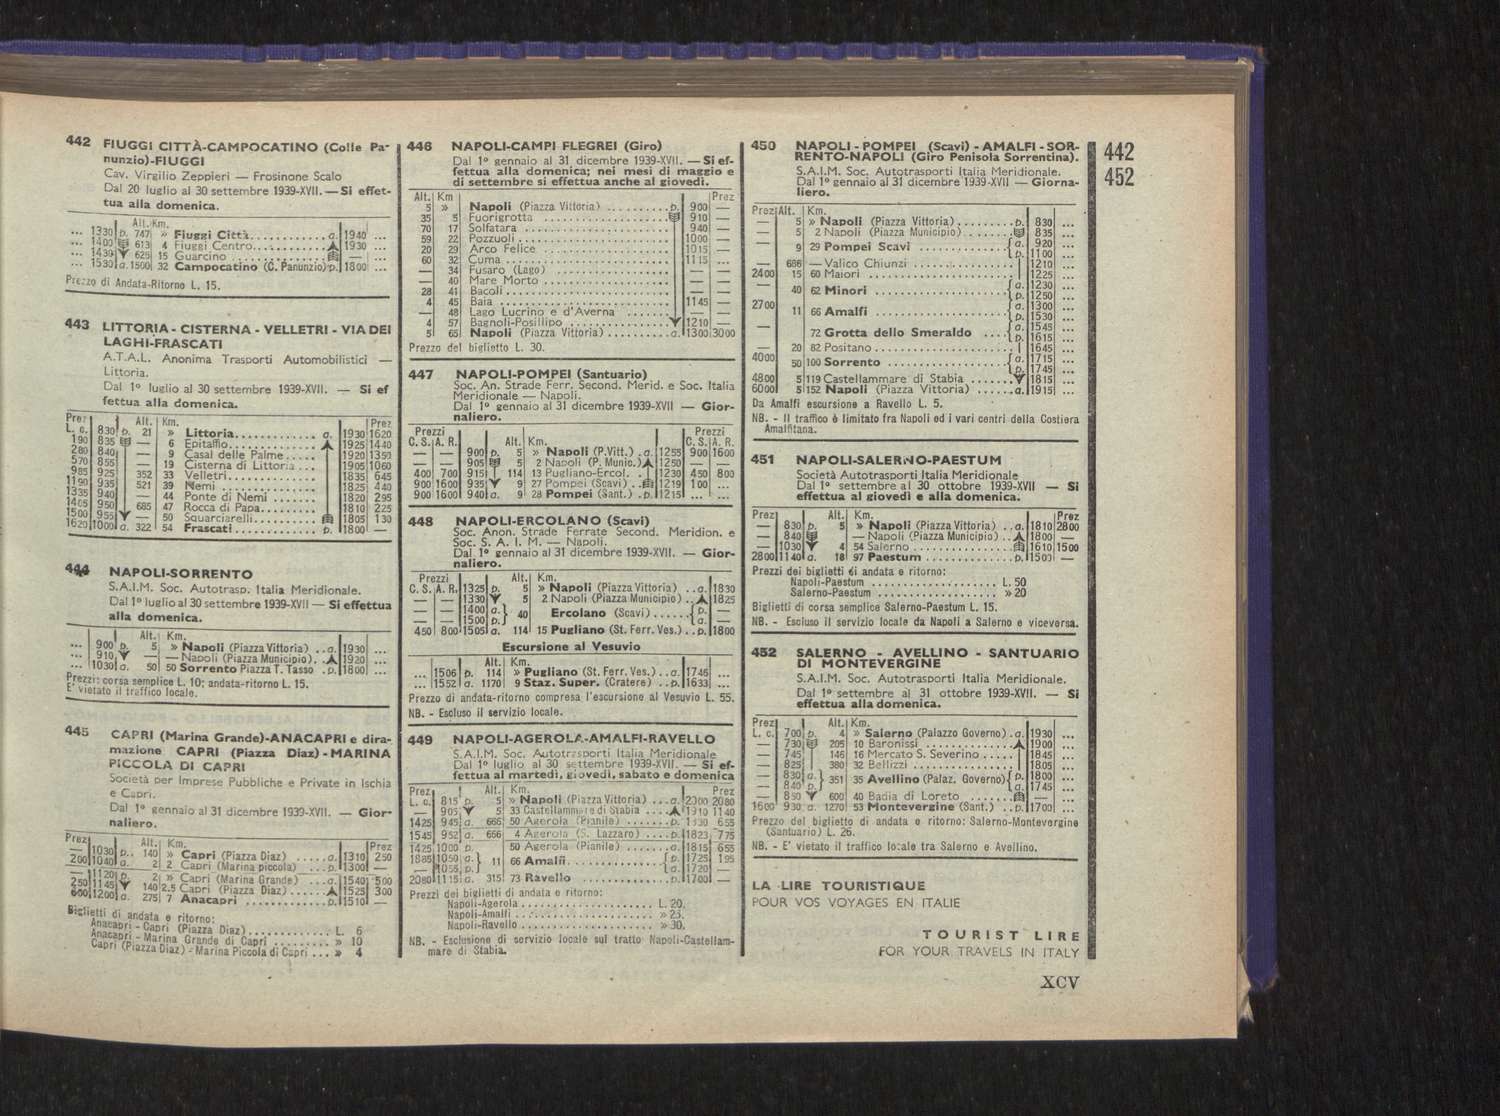 442 FIUGGI CITTÀ-CAMPOCATINO (Colle Pa-
nunzio)-FIUGGI
Cav. Virgilio Zeppieri — Frosinone Scalo
Dal 20 luglio al 30 settembre 1939-XVII. — Si effet-
tua alla domenica.
Alt. Km.
... 1330 p. 747 » Fiuggi Città. . . . . . . . . . . a. 1940 ...
... 1400 613 4 Fiuggi Centro. . . . . . . . . 1930 ...
... 1439 625 15 Guarcino . . . . . . . . . . — ...
... 1530 a. 1500 32 Campocatino (C. Panunzio) p. 1800 ...
Prezzo di Andata-Ritorno L. 15.
443 LITTORIA - CISTERNA - VELLETRI - VIA DEI
LAGHI-FRASCATI
A.T.A.L. Anonima Trasporti Automobilistici —
Littoria.
Dal 1º luglio al 30 settembre 1939-XVII. — Si ef
fettua alla domenica.
Prez Alt. Km. Prez
L. c. 830 p. 21 » Littoria. . . . . . . . . . . . a. 1930 1620
190 835 — 6 Epitaffio. . . . . . . . . . . 1925 1440
280 840 — 9 Casal delle Palme . . . . . 1920 1350
570 855 — 19 Cisterna di Littoria . . . 1905 1060
985 925 352 33 Velletri. . . . . . . . . . . . 1835 645
1190 935 521 39 Nemi . . . . . . . . . . . . . 1825 440
1335 940 — 44 Ponte di Nemi . . . . . . . 1820 295
1405 950 685 47 Rocca di Papa. . . . . . . . 1810 225
1500 955 — 50 Squarciarelli. . . . . . . . . 1805 130
1620 1000 a. 322 54 Frascati . . . . . . . . . . . p. 1800 —
444 NAPOLI-SORRENTO
S.A.I.M. Soc. Autotrasp. Italia Meridionale.
Dal 1º luglio al 30 settembre 1939-XVII — Si effettua
alla domenica.
Alt. Km.
... 900 p. 5 » Napoli (Piazza Vittoria) . . a. 1930 ...
... 910 — — Napoli (Piazza Municipio). . 1920 ...
... 1030 a. 50 50 Sorrento Piazza T. Tasso . p. 1800 ...
Prezzi: corsa semplice L. 10; andata-ritorno L. 15.
E' vietato il traffico locale.
445 CAPRI (Marina Grande)-ANACAPRI e dira-
mazione CAPRI (Piazza Diaz) - MARINA
PICCOLA DI CAPRI
Società per Imprese Pubbliche e Private in Ischia
e Capri.
Dal 1º gennaio al 31 dicembre 1939-XVII. — Gior-
naliero.
Prez Alt. Km. Prez
— 1030 p. 140 » Capri (Piazza Diaz) . . . . . a. 1310 250
200 1040 a. 2 2 Capri (Marina piccola) . . . p. 1300 —
— 1120 p. 2 » Capri (Marina Grande) . . . a. 1540 500
250 1145 140 2.5 Capri (Piazza Diaz) . . . . . 1525 300
600 1200 a. 275 7 Anacapri . . . . . . . . . . . . p. 1510 —
Biglietti di andata e ritorno:
Anacapri - Capri (Piazza Diaz). . . . . . . . . . . . . L. 6
Anacapri - Marina Grande di Capri . . . . . . . . . » 10
Capri (Piazza Diaz) - Marina Piccola di Capri . . . » 4
446 NAPOLI-CAMPI FLEGREI (Giro)
Dal 1º gennaio al 31 dicembre 1939-XVII. — Si ef-
fettua alla domenica; nei mesi di maggio e
di settembre si effettua anche al giovedì.
Alt. Km Prez
5 » Napoli (Piazza Vittoria) . . . . . . . . . . p. 900 —
35 5 Fuorigrotta . . . . . . . . . . . . . . . . . . 910 —
70 17 Solfatara . . . . . . . . . . . . . . . . . . . 940 —
59 22 Pozzuoli . . . . . . . . . . . . . . . . . . . . 1000 —
20 29 Arco Felice . . . . . . . . . . . . . . . . . . 1015 —
60 32 Cuma . . . . . . . . . . . . . . . . . . . . . . 1115 —
— 34 Fusaro (Lago) . . . . . . . . . . . . . . . . — —
— 40 Mare Morto . . . . . . . . . . . . . . . . . . — —
28 41 Bacoli . . . . . . . . . . . . . . . . . . . . . . — —
4 45 Baia . . . . . . . . . . . . . . . . . . . . . . . 1145 —
— 48 Lago Lucrino e d'Averna . . . . . . . — —
4 57 Bagnoli-Posillipo . . . . . . . . . . . . . . 1210 —
5 65 Napoli (Piazza Vittoria) . . . . . . . . . . a. 1300 3000
Prezzo del biglietto L. 30.
447 NAPOLI-POMPEI (Santuario)
Soc. An. Strade Ferr. Second. Merid. e Soc. Italia
Meridionale — Napoli.
Dal 1º gennaio al 31 dicembre 1939-XVII — Gior-
naliero.
Prezzi Prezzi
C. S. A. R. Alt. Km. C. S. A. R.
— — 900 p. 5 » Napoli (P.Vitt.) . a. 1255 900 1600
— — 905 5 2 Napoli (P. Munic.) 1250 — —
400 700 915 114 13 Pugliano-Ercol. . 1230 450 800
900 1600 935 9 27 Pompei (Scavi) . . 1219 100 ...
900 1600 940 a. 9 28 Pompei (Sant.) . p. 1215 ... ...
448 NAPOLI-ERCOLANO (Scavi)
Soc. Anon. Strade Ferrate Second. Meridion. e
Soc. S. A. I. M. — Napoli.
Dal 1º gennaio al 31 dicembre 1939-XVII. — Gior-
naliero.
Prezzi Alt. Km.
C. S. A. R. 1325 p. 5 » Napoli (Piazza Vittoria) . . a. 1830
— — 1330 5 2 Napoli (Piazza Municipio) . . 1825
— — 1400 a. } 40 Ercolano (Scavi) . . . . . . { p. —
— — 1500 p. } { a. —
450 800 1505 a. 114 15 Pugliano (St. Ferr. Ves.) . . p. 1800
Escursione al Vesuvio
Alt. Km.
... 1506 p. 114 » Pugliano (St. Ferr. Ves.) . . a. 1746 ...
... 1552 a. 1170 9 Staz. Super. (Cratere) . . p. 1633 ...
Prezzo di andata-ritorno compresa l'escursione al Vesuvio L. 55.
NB. - Escluso il servizio locale.
449 NAPOLI-AGEROLA-AMALFI-RAVELLO
S.A.I.M. Soc. Autotrasporti Italia Meridionale
Dal 1º luglio al 30 settembre 1939-XVII. — Si ef-
fettua al martedì, giovedì, sabato e domenica
Prez Alt. Km. Prez
L. c. 815 p. 5 » Napoli (Piazza Vittoria) . . . a. 2000 2080
— 905 5 33 Castellammare di Stabia . . . 1910 1140
1425 945 a. 666 50 Agerola (Pianile) . . . . . . . p. 1830 655
1545 952 a. 666 4 Agerola (S. Lazzaro) . . . . p. 1823 775
1425 1000 p. 50 Agerola (Pianile) . . . . . . . a. 1815 655
1885 1050 a. } 11 66 Amalfi. . . . . . . . . . . . . . { p. 1725 195
1055 p. } { a. 1720 —
2080 1115 a. 315 73 Ravello . . . . . . . . . . . . . p. 1700 —
Prezzi dei biglietti di andata e ritorno:
Napoli-Agerola . . . . . . . . . . . . . . . . . . . L. 20.
Napoli-Amalfi . . . . . . . . . . . . . . . . . . . . » 25.
Napoli-Ravello . . . . . . . . . . . . . . . . . . . » 30.
NB. - Esclusione di servizio locale sul tratto Napoli-Castellam-
mare di Stabia.
450 NAPOLI - POMPEI (Scavi) - AMALFI - SOR-
RENTO-NAPOLI (Giro Penisola Sorrentina).
S.A.I.M. Soc. Autotrasporti Italia Meridionale.
Dal 1º gennaio al 31 dicembre 1939-XVII — Giorna-
liero.
Prez Alt. Km.
— 5 » Napoli (Piazza Vittoria) . . . . . . . p. 830 ...
— 5 2 Napoli (Piazza Municipio) . . . . . 835 ...
— 9 29 Pompei Scavi . . . . . . . . . . . { a. 920 ...
{ p. 1100 ...
— 686 — Valico Chiunzi . . . . . . . . . . . . 1210 ...
2400 15 60 Maiori . . . . . . . . . . . . . . . . . 1225 ...
— 40 62 Minori . . . . . . . . . . . . . . . . { a. 1230 ...
{ p. 1250 ...
2700 11 66 Amalfi . . . . . . . . . . . . . . . . { a. 1300 ...
{ p. 1530 ...
— 72 Grotta dello Smeraldo . . . . { a. 1545 ...
{ p. 1615 ...
— 20 82 Positano . . . . . . . . . . . . . . . 1645 ...
4000 50 100 Sorrento . . . . . . . . . . . . . . { a. 1715 ...
{ p. 1745 ...
4800 5 119 Castellammare di Stabia . . . . . . 1815 ...
6000 5 152 Napoli (Piazza Vittoria) . . . . . . a. 1915 ...
Da Amalfi escursione a Ravello L. 5.
NB. - Il traffico è limitato fra Napoli ed i vari centri della Costiera
Amalfitana.
451 NAPOLI-SALERNO-PAESTUM
Società Autotrasporti Italia Meridionale
Dal 1º settembre al 30 ottobre 1939-XVII — Si
effettua al giovedì e alla domenica.
Prez Alt. Km. Prez
— 830 p. 5 » Napoli (Piazza Vittoria) . . a. 1810 2800
— 840 — Napoli (Piazza Municipio) . . 1800 —
— 1030 4 54 Salerno . . . . . . . . . . . . . . . 1610 1500
2800 1140 a. 18 97 Paestum . . . . . . . . . . . . . p. 1500 —
Prezzi dei biglietti di andata e ritorno:
Napoli-Paestum . . . . . . . . . . . . . . . . . . L. 50
Salerno-Paestum . . . . . . . . . . . . . . . . . » 20
Biglietti di corsa semplice Salerno-Paestum L. 15.
NB. - Escluso il servizio locale da Napoli a Salerno e viceversa.
452 SALERNO - AVELLINO - SANTUARIO
DI MONTEVERGINE
S.A.I.M. Soc. Autotrasporti Italia Meridionale.
Dal 1º settembre al 31 ottobre 1939-XVII. — Si
effettua alla domenica.
Prez Alt. Km.
L. c. 700 p. 4 » Salerno (Palazzo Governo) . a. 1930 ...
— 730 205 10 Baronissi . . . . . . . . . . . . . 1900 ...
— 745 146 16 Mercato S. Severino . . . . . 1845 ...
— 825 380 32 Bellizzi . . . . . . . . . . . . . . . 1805 ...
— 830 a. } 351 35 Avellino (Palaz. Governo) { p. 1800 ...
— 840 p. } { a. 1745 ...
— 850 600 40 Badia di Loreto . . . . . . — ...
1600 930 a. 1270 53 Montevergine (Sant.) . . p. 1700 ...
Prezzo del biglietto di andata e ritorno: Salerno-Montevergine
(Santuario) L. 26.
NB. - E' vietato il traffico locale tra Salerno e Avellino.
LA LIRE TOURISTIQUE
POUR VOS VOYAGES EN ITALIE
TOURIST LIRE
FOR YOUR TRAVELS IN ITALY
442
452
XCV